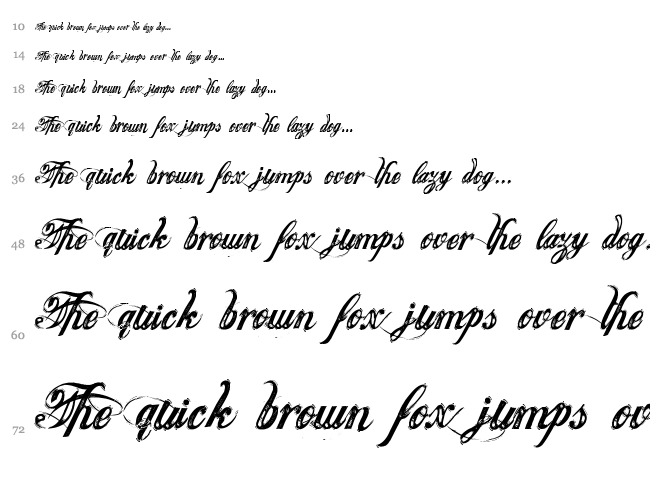 10 The quick brown fox jumps over the lazy dog...
14 The quick brown fox jumps over the lazy dog...
18 The quick brown fox jumps over the lazy dog...
24 The quick brown fox jumps over the lazy dog...
36 The quick brown fox jumps over the lazy dog...
48 The quick brown fox jumps over the lazy dog.
60 The quick brown fox jumps over the
72 The quick brown fox jumps ov